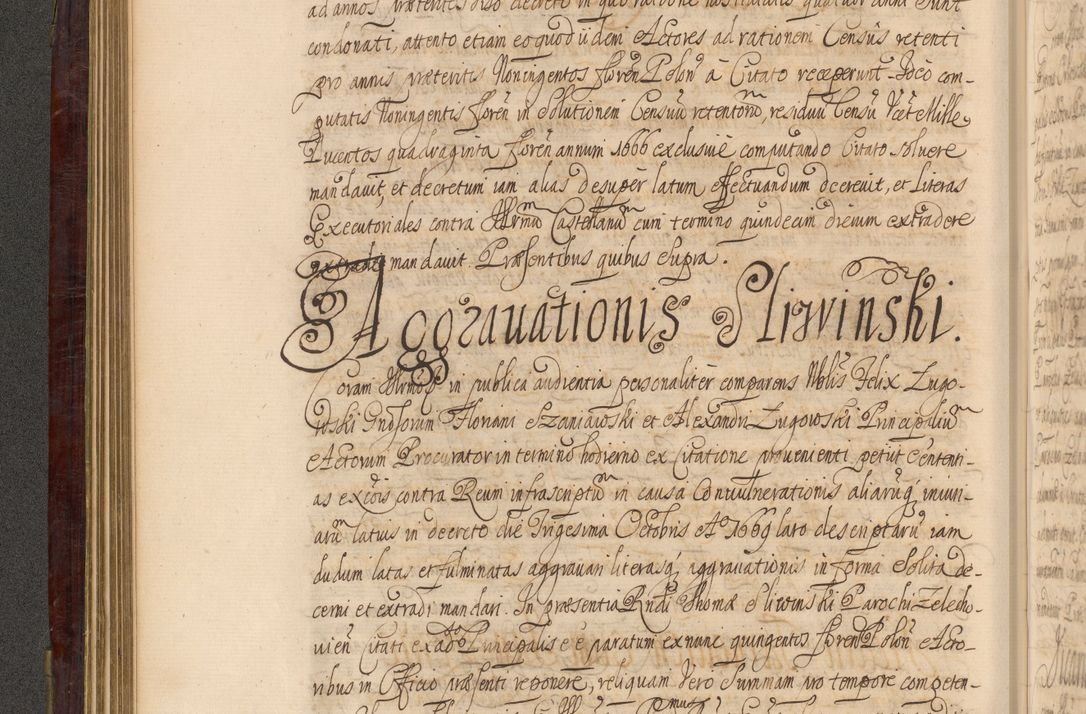 ad annos præteritos
condonati, attento etiam eo quod iidem Actores ad rationem Censûs retenti
pro annis præteritis Noningentos floren Polon à Citato receperunt. Ideò com-
putatis Noningentis floren in Solutionem Censuũ retentorũ, residuũ Censũ Mille
Ducentos quadraginta floren annum 1666 exclusivè computando Citato solvere
mandavit, et decretum iam alias desuper latum effectuandum decrevit, et literas
Executoriales contra Castellanum cum termino quindecim dierum extradere
mandavit. Præsentibus quibus supra.
Aggravationis Sliwinski.
Coram in publica audientia personalitèr comparens Nobls Felix Zugo-
wski Gndsorum Floriani Szaniawski et Alexandri Zugowski Principaliũ
Actorum Procurator in terminô hodierno ex Citatione provenienti petiit Sententi-
as excõis contra Reum infrascriptũ in causa Convulnerationis aliarũq iniuri-
arũ latius in decreto die Trigesima Octobris Aº 1669 lato descriptarũ iam
dudum latas et fulminatas aggravari literasq aggravationis in forma Solita de-
cerni et extradi mandari. In præsentia Rndi Thomæ Sliwinski Parochi Zelecho-
vien Citati ex adº Principalis è paratum exnunc quingentos floren Polon Acto-
ribus in Officio præsenti reponere, reliquam Vero Summam pro tempore competen-